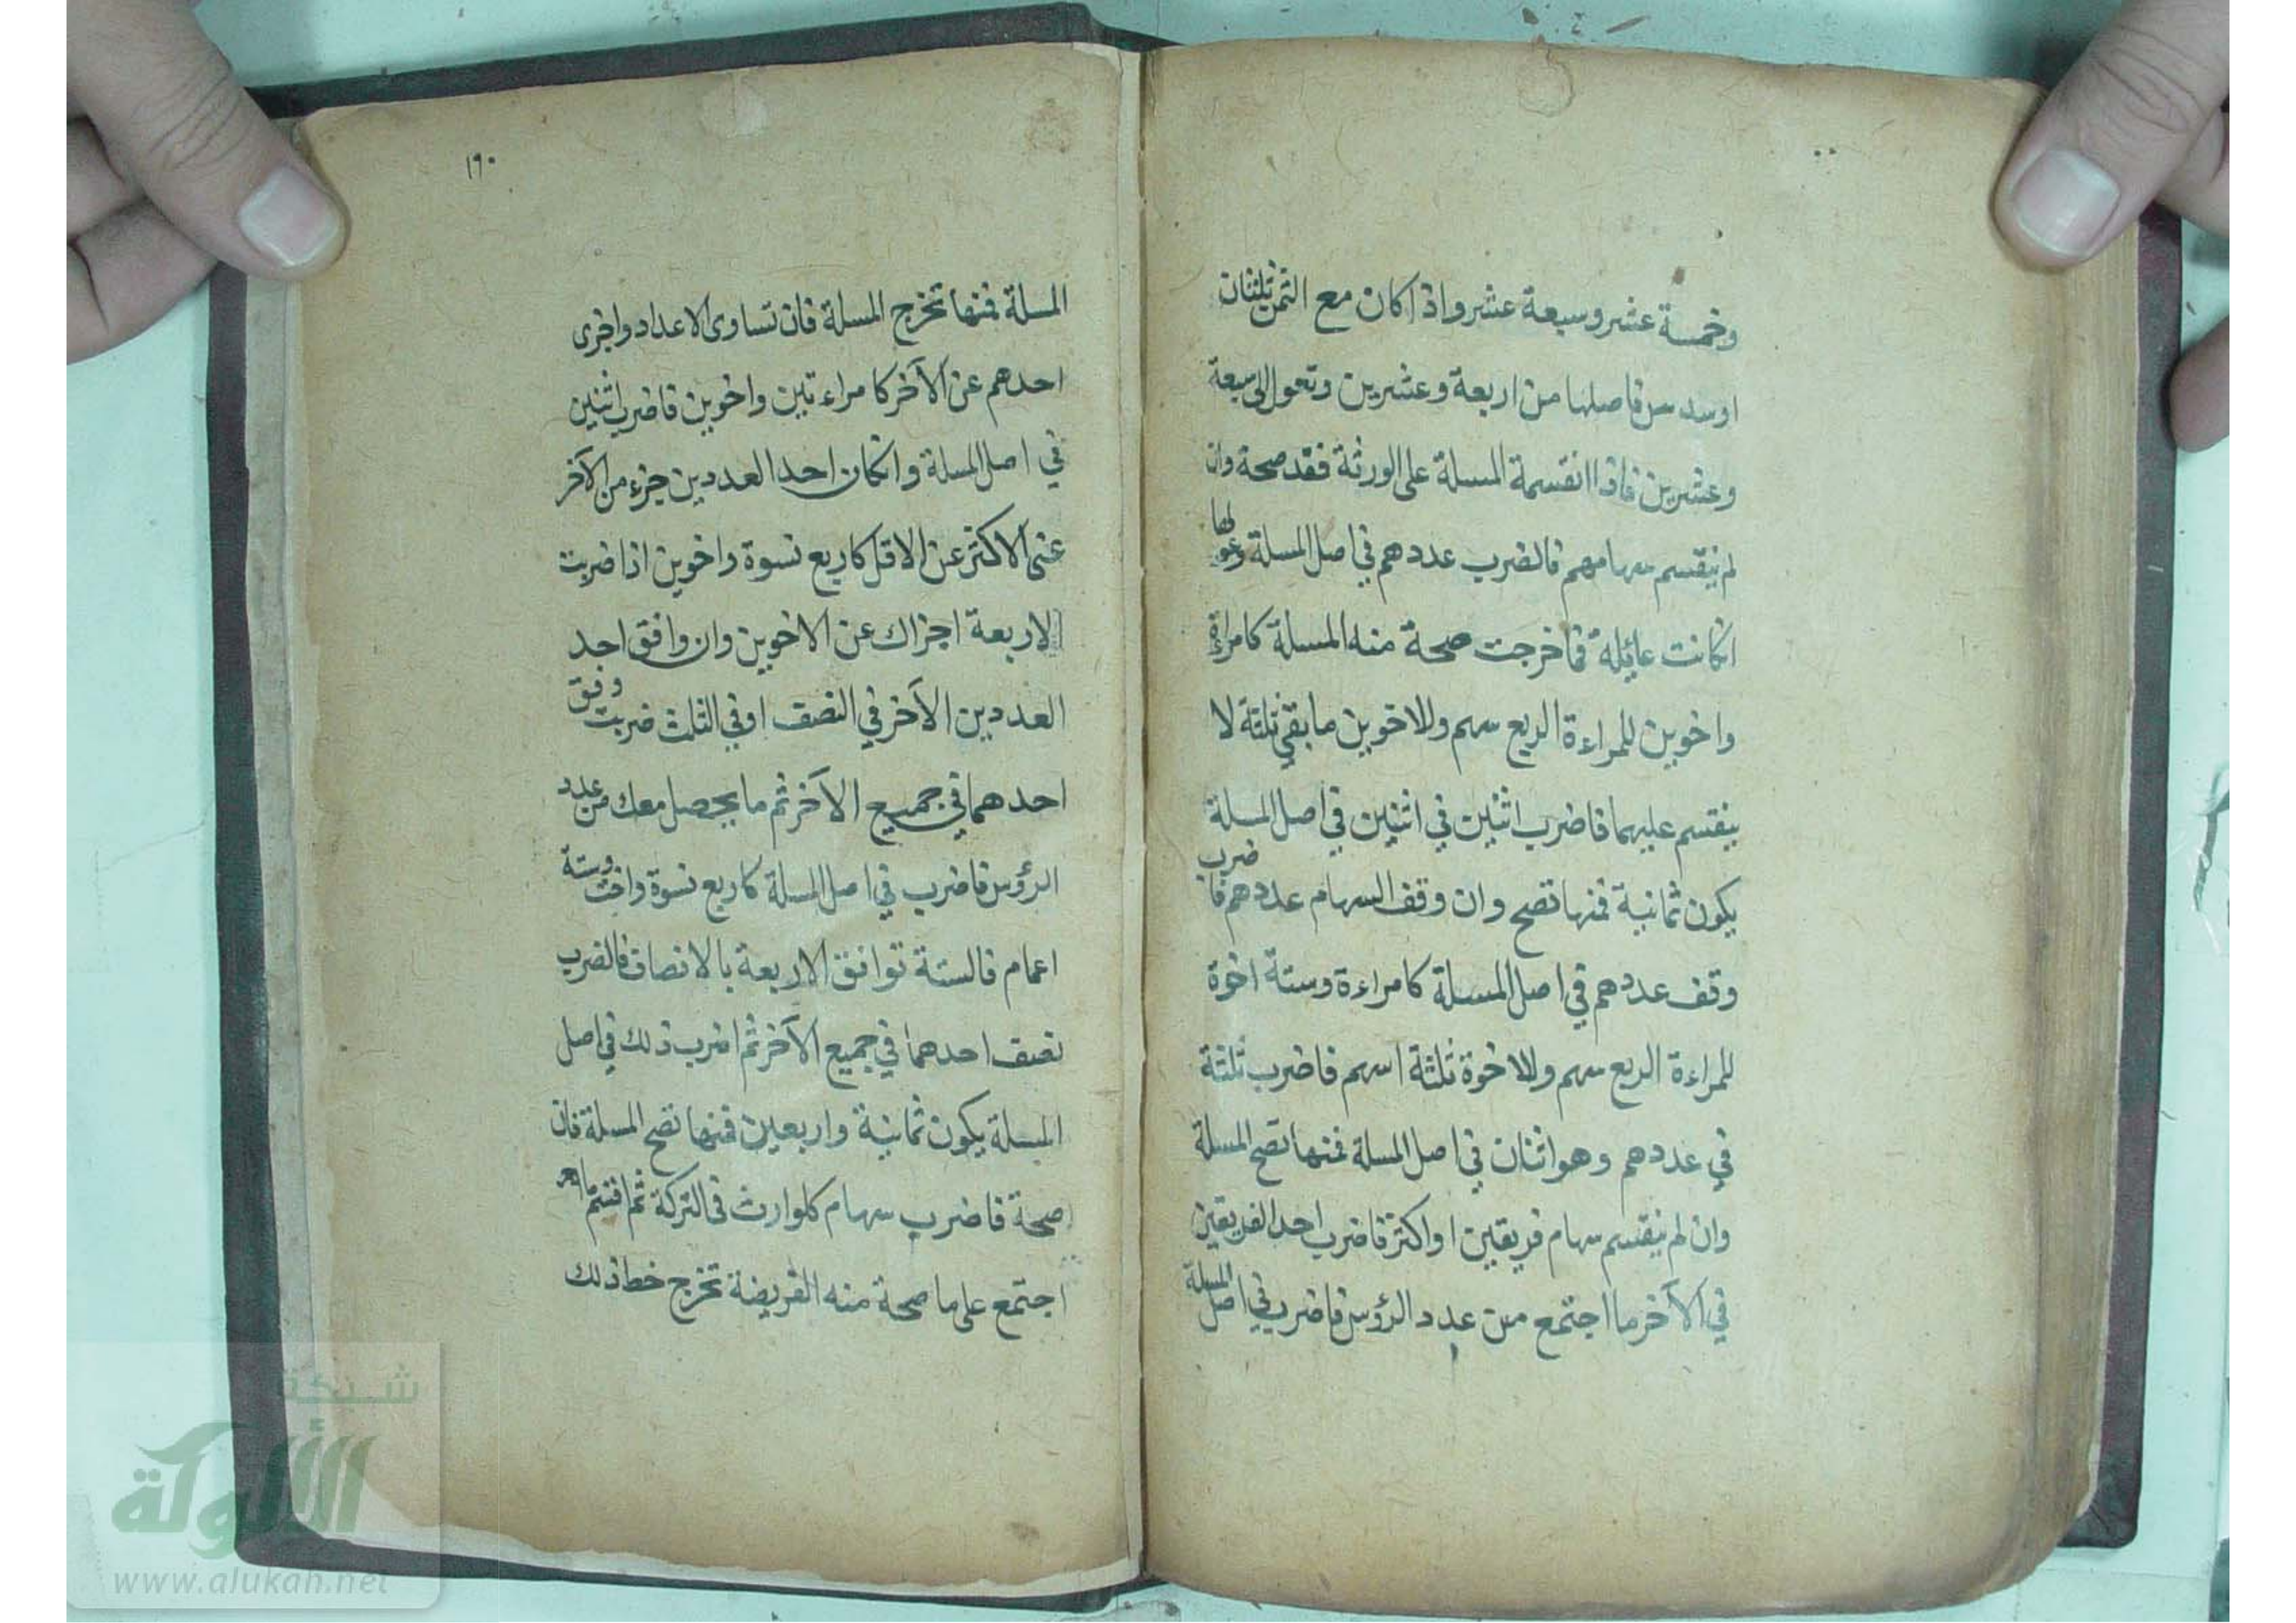 وخمسة عشر وسبعة عشر واذا كان مع الثمن ثلثان
اوسدس فاصلها من اربعة وعشرين وتعول الى سبعة
وعشرين فاذا انقسمة المسلة على الورثة فقد صحة وان
لم ينقسم سهامهم فالضرب عددهم في اصل المسلة وعولها
انكانت عائلة فما خرجت صحة منه المسلة كامراة
واخوين للمراءة الربع سهم وللاخوين ما بقي ثلثة لا
ينقسم عليهما فاضرب اثنين في اثنين في اصل المسلة
يكون ثمانية فمنها تصح وان وقف السهام عددهم فاضرب
وقف عددهم في اصل المسلة كامراءة وستة اخوة
للمراءة الربع سهم وللاخوة ثلثة اسهم فاضرب ثلثة
في عددهم وهو اثنان في اصل المسلة فمنها تصح المسلة
وان لم ينقسم سهام فريقين او اكثر فاضرب احد الفريقين
في الآخر ما اجتمع من عدد الرؤس فاضرب في اصل المسلة
١٩٠
المسلة فمنها تخرج المسلة فان تساوى الاعداد واجزى
احدهم عن الآخر كامراءتين واخوين فاضرب اثنين
في اصل المسلة وانكان احد العددين جزء من الآخر
عنى الاكثر عن الاقل كاربع نسوة واخوين اذا ضربت
الاربعة اجزاك عن الاخوين وان وافق احد
العددين الآخر في النصف او في الثلث ضربت وفق
احدهما في جميع الآخر ثم ما يحصل معك من عدد
الرؤس فاضرب في اصل المسلة كاربع نسوة واخت وستة
اعمام فالستة توافق الاربعة بالانصاف فالضرب
نصف احدهما في جميع الآخر ثم اضرب ذلك في اصل
المسلة يكون ثمانية واربعين فمنها تصح المسلة فان
صحة فاضرب سهام كلوارث في التركة ثم اقسم ما
اجتمع على ما صحة منه الفريضة تخرج خط ذلك
شبكة
الألوكة
www.alukah.net